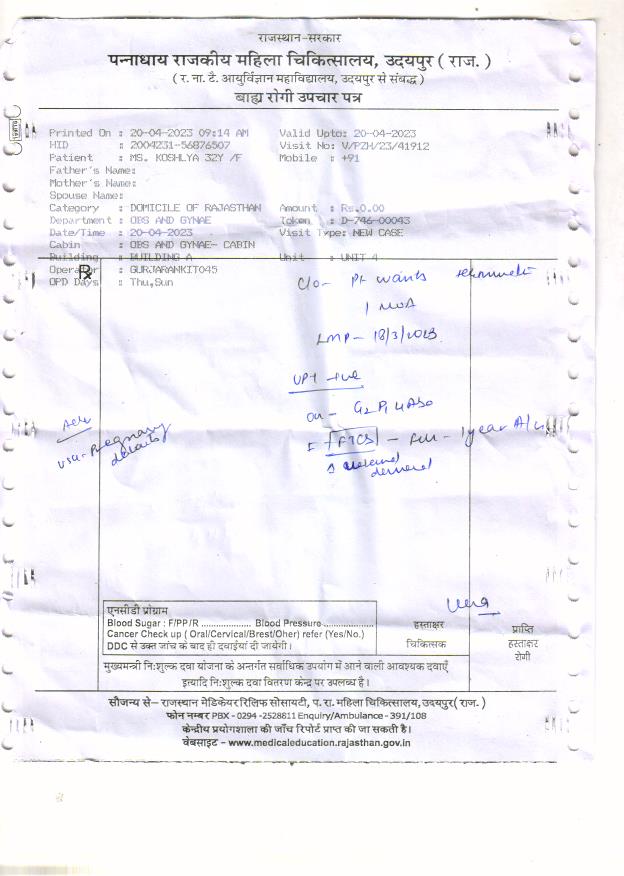 राजस्थान-सरकार
पन्नाधाय राजकीय महिला चिकित्सालय, उदयपुर ( राज. )
( र. ना. टै. आयुर्विज्ञान महाविद्यालय, उदयपुर से संबद्ध )
बाह्य रोगी उपचार पत्र
Printed On : 20-04-2023 09:14 AM Valid Upto: 20-04-2023
HID : 2004231-56876507 Visit No: V/PZH/23/41912
Patient : MS. KOSHLYA 32Y /F Mobile : +91
Father's Name:
Mother's Name:
Spouse Name:
Category : DOMICILE OF RAJASTHAN Amount : Rs.0.00
Department : OBS AND GYNAE Token : D-746-00043
Date/Time : 20-04-2023 Visit Type: NEW CASE
Cabin : OBS AND GYNAE- CABIN
Building : BUILDING A Unit : UNIT 4
Operator : GURJARANKIT045
OPD Days : Thu,Sun
Rx
C/o - Pt wants
1 MOA
LMP - 18/3/2023
UPT +ve
FTCS
1 year
maternal
demand
Adv
USG - Pregnancy
details
एनसीडी प्रोग्राम
Blood Sugar : F/PP/R .................... Blood Pressure....................
Cancer Check up ( Oral/Cervical/Brest/Oher) refer (Yes/No.)
DDC से उक्त जांच के बाद ही दवाईयां दी जायेगी।
हस्ताक्षर
चिकित्सक
प्राप्ति
हस्ताक्षर
रोगी
मुख्यमन्त्री नि:शुल्क दवा योजना के अन्तर्गत सर्वाधिक उपयोग में आने वाली आवश्यक दवाएँ
इत्यादि नि:शुल्क दवा वितरण केन्द्र पर उपलब्ध है।
सौजन्य से– राजस्थान मेडिकेयर रिलिफ सोसायटी, प. रा. महिला चिकित्सालय, उदयपुर( राज. )
फोन नम्बर PBX - 0294 -2528811 Enquiry/Ambulance - 391/108
केन्द्रीय प्रयोगशाला की जाँच रिपोर्ट प्राप्त की जा सकती है।
वेबसाइट – www.medicaleducation.rajasthan.gov.in